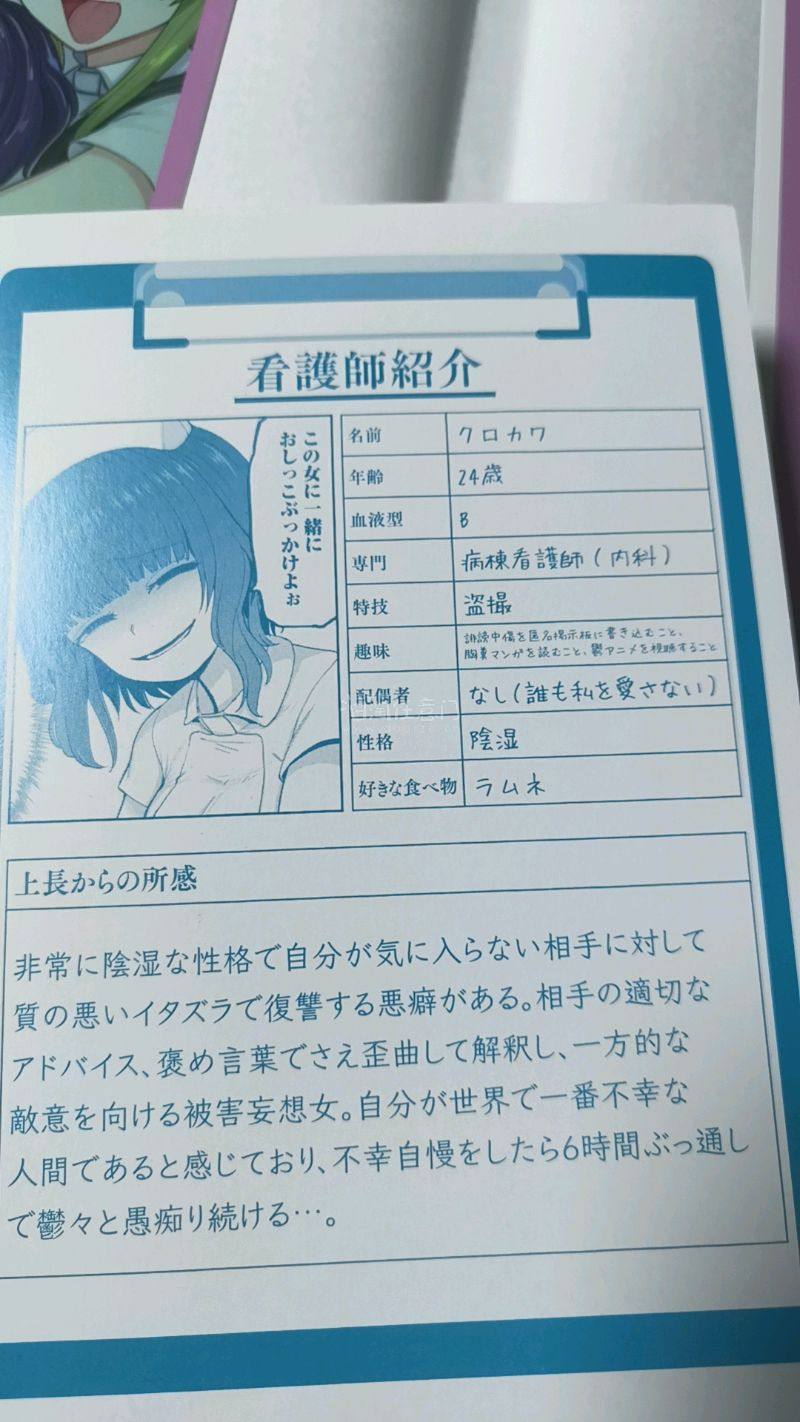 看護師紹介
この女に一緒に
おしっこぶっかけよぉ
名前 クロカワ
年齢 24歳
血液型 B
専門 病棟看護師(内科)
特技 盗撮
趣味 誹謗中傷を匿名掲示板に書き込むこと、
胸糞マンガを読むこと、鬱アニメを視聴すること
配偶者 なし(誰も私を愛さない)
性格 陰湿
好きな食べ物 ラムネ
上長からの所感
非常に陰湿な性格で自分が気に入らない相手に対して
質の悪いイタズラで復讐する悪癖がある。相手の適切な
アドバイス、褒め言葉でさえ歪曲して解釈し、一方的な
敵意を向ける被害妄想女。自分が世界で一番不幸な
人間であると感じており、不幸自慢をしたら6時間ぶっ通し
で鬱々と愚痴り続ける…。